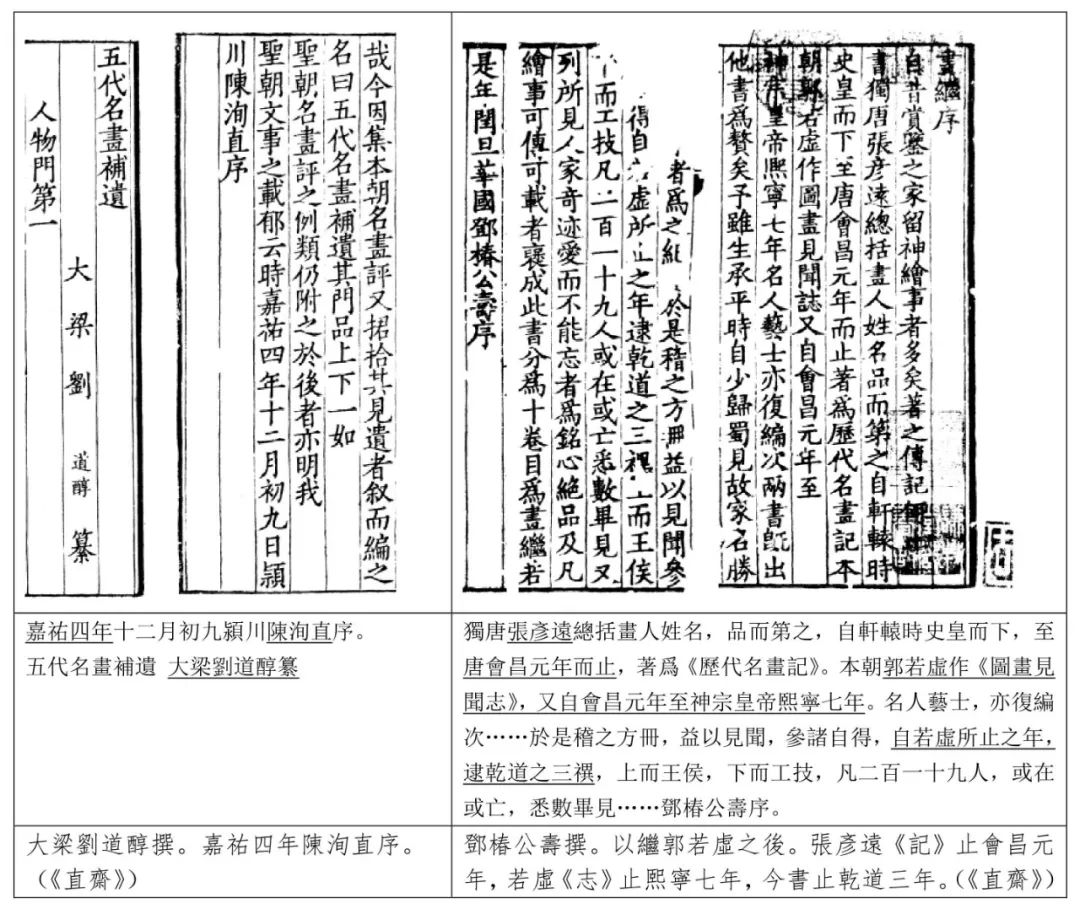 哉今因集本朝名畫評又捃拾其見遺者叙而編之
名曰五代名畫補遺其門品上下一如
聖朝名畫評之例類仍附之於後者亦明我
聖朝文事之載郁云時嘉祐四年十二月初九日潁
川陳洵直序
五代名畫補遺
大梁劉道醇纂
人物門第一
畫繼序
自昔賞鑒之家留神繪事者多矣著之傳記
書獨唐張彥遠總括畫人姓名品而第之自軒轅時
史皇而下至唐會昌元年而止著爲歷代名畫記本
朝郭若虛作圖畫見聞誌又自會昌元年至
神宗皇帝熙寧七年名人藝士亦復編次兩書旣出
他書爲贅矣予雖生承平時自少歸蜀見故家名勝
者爲之 於是稽之方冊益以見聞參
得自 虛所止之年逮乾道之三禩 而王侯
而工技凡二百一十九人或在或亡悉數畢見又
列所見人家奇迹愛而不能忘者爲銘心絶品及凡
繪事可傳可載者裒成此書分爲十卷目爲畫繼若
是年閏旦華國鄧椿公壽序
嘉祐四年十二月初九潁川陳洵直序。
五代名畫補遺 大梁劉道醇纂
獨唐張彥遠總括畫人姓名，品而第之，自軒轅時史皇而下，至
唐會昌元年而止，著爲《歷代名畫記》。本朝郭若虛作《圖畫見
聞志》，又自會昌元年至神宗皇帝熙寧七年。名人藝士，亦復編
次……於是稽之方冊，益以見聞，參諸自得，自若虛所止之年，
逮乾道之三禩，上而王侯，下而工技，凡二百一十九人，或在
或亡，悉數畢見……鄧椿公壽序。
大梁劉道醇撰。嘉祐四年陳洵直序。
（《直齋》）
鄧椿公壽撰。以繼郭若虛之後。張彥遠《記》止會昌元
年，若虛《志》止熙寧七年，今書止乾道三年。（《直齋》）